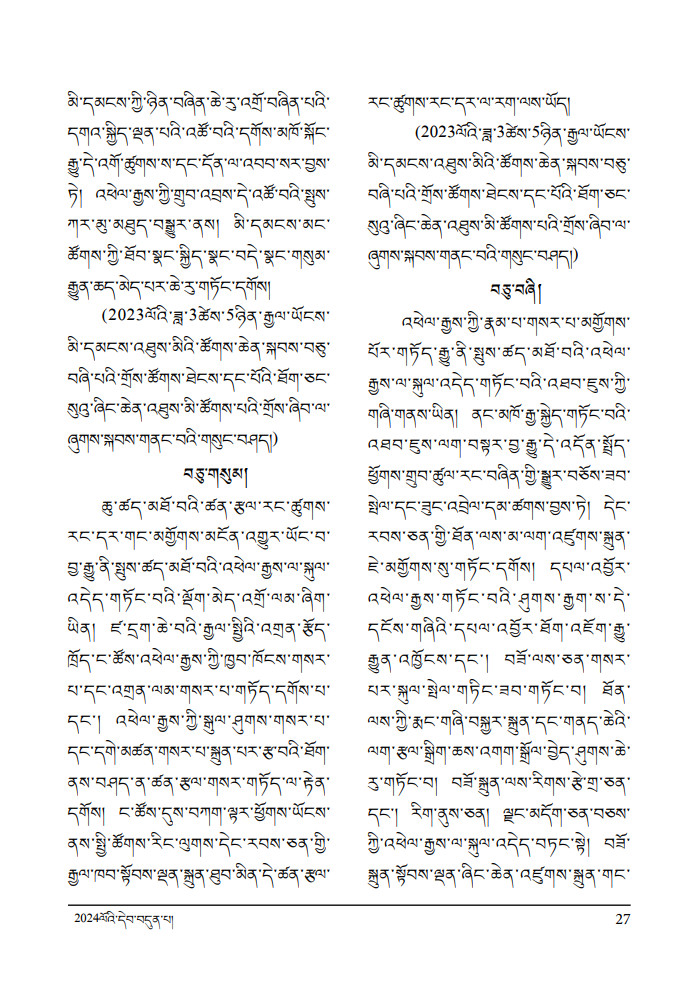 མི་དམངས་ཀྱི་ཉིན་བཞིན་ཆེ་རུ་འགྲོ་བཞིན་པའི་
དགའ་སྐྱིད་ལྡན་པའི་འཚོ་བའི་དགོས་མཁོ་སྐོང་
རྒྱུ་དེ་འགོ་ཚུགས་ས་དང་དོན་ལ་འབབ་སར་བྱས་
ཏེ། འཕེལ་རྒྱས་ཀྱི་གྲུབ་འབྲས་དེ་འཚོ་བའི་སྤུས་
ཀར་མུ་མཐུད་བསྒྱུར་ནས། མི་དམངས་མང་
ཚོགས་ཀྱི་ཐོབ་སྣང་སྐྱིད་སྣང་བདེ་སྣང་གསུམ་
རྒྱུན་ཆད་མེད་པར་ཆེ་རུ་གཏོང་དགོས།
(2023ལོའི་ཟླ་3ཚེས་5ཉིན་རྒྱལ་ཡོངས་
མི་དམངས་འཐུས་མིའི་ཚོགས་ཆེན་སྐབས་བཅུ་
བཞི་པའི་གྲོས་ཚོགས་ཐེངས་དང་པོའི་ཐོག་ཅང་
སུའུ་ཞིང་ཆེན་འཐུས་མི་ཚོགས་པའི་གྲོས་ཞིབ་ལ་
ཞུགས་སྐབས་གནང་བའི་གསུང་བཤད།)
བཅུ་གསུམ།
ཆུ་ཚད་མཐོ་བའི་ཚན་རྩལ་རང་ཚུགས་
རང་དར་གང་མགྱོགས་མངོན་འགྱུར་ཡོང་བ་
བྱ་རྒྱུ་ནི་སྤུས་ཚད་མཐོ་བའི་འཕེལ་རྒྱས་ལ་སྐུལ་
འདེད་གཏོང་བའི་ལྡོག་མེད་འགྲོ་ལམ་ཞིག་
ཡིན། ཛ་དྲག་ཆེ་བའི་རྒྱལ་སྤྱིའི་འགྲན་རྩོད་
ཁྲོད་ང་ཚོས་འཕེལ་རྒྱས་ཀྱི་ཁྱབ་ཁོངས་གསར་
པ་དང་འགྲན་ལམ་གསར་པ་གཏོད་དགོས་པ་
དང་། འཕེལ་རྒྱས་ཀྱི་སྒུལ་ཤུགས་གསར་པ་
དང་དགེ་མཚན་གསར་པ་སྐྲུན་པར་རྩ་བའི་ཐོག་
ནས་བཤད་ན་ཚན་རྩལ་གསར་གཏོད་ལ་རྟེན་
དགོས། ང་ཚོས་དུས་བཀག་ལྟར་ཕྱོགས་ཡོངས་
ནས་སྤྱི་ཚོགས་རིང་ལུགས་དེང་རབས་ཅན་གྱི་
རྒྱལ་ཁབ་སྟོབས་ལྡན་སྐྲུན་ཐུབ་མིན་དེ་ཚན་རྩལ་
རང་ཚུགས་རང་དར་ལ་རག་ལས་ཡོད།
(2023ལོའི་ཟླ་3ཚེས་5ཉིན་རྒྱལ་ཡོངས་
མི་དམངས་འཐུས་མིའི་ཚོགས་ཆེན་སྐབས་བཅུ་
བཞི་པའི་གྲོས་ཚོགས་ཐེངས་དང་པོའི་ཐོག་ཅང་
སུའུ་ཞིང་ཆེན་འཐུས་མི་ཚོགས་པའི་གྲོས་ཞིབ་ལ་
ཞུགས་སྐབས་གནང་བའི་གསུང་བཤད།)
བཅུ་བཞི།
འཕེལ་རྒྱས་ཀྱི་རྣམ་པ་གསར་པ་མགྱོགས་
པོར་གཏོད་རྒྱུ་ནི་སྤུས་ཚད་མཐོ་བའི་འཕེལ་
རྒྱས་ལ་སྐུལ་འདེད་གཏོང་བའི་འཐབ་ཇུས་ཀྱི་
གཞི་གནས་ཡིན། ནང་མཁོ་རྒྱ་སྐྱེད་གཏོང་བའི་
འཐབ་ཇུས་ལག་བསྟར་བྱ་རྒྱུ་དེ་འདོན་སྤྲོད་
ཕྱོགས་གྲུབ་ཚུལ་རང་བཞིན་གྱི་སྒྱུར་བཅོས་ཟབ་
སྤེལ་དང་ཟུང་འབྲེལ་དམ་ཚགས་བྱས་ཏེ། དེང་
རབས་ཅན་གྱི་ཐོན་ལས་མ་ལག་འཛུགས་སྐྲུན་
ཇེ་མགྱོགས་སུ་གཏོང་དགོས། དཔལ་འབྱོར་
འཕེལ་རྒྱས་གཏོང་བའི་ཤུགས་རྒྱག་ས་དེ་
དངོས་གཞིའི་དཔལ་འབྱོར་ཐོག་འཇོག་རྒྱུ་
རྒྱུན་འཁྱོངས་དང་། བཟོ་ལས་ཅན་གསར་
པར་སྐུལ་སྤེལ་གཏིང་ཟབ་གཏོང་བ། ཐོན་
ལས་ཀྱི་རྨང་གཞི་བསྐྱར་སྐྲུན་དང་གནད་ཆེའི་
ལག་རྩལ་སྒྲིག་ཆས་འགག་སྒྲོལ་བྱེད་ཤུགས་ཆེ་
རུ་གཏོང་བ། བཟོ་སྐྲུན་ལས་རིགས་རྩེ་གྲ་ཅན་
དང་། རིག་ནུས་ཅན། ལྗང་མདོག་ཅན་བཅས་
ཀྱི་འཕེལ་རྒྱས་ལ་སྐུལ་འདེད་བཏང་སྟེ། བཟོ་
སྐྲུན་སྟོབས་ལྡན་ཞིང་ཆེན་འཛུགས་སྐྲུན་གང་
2024ལོའི་དེབ་བདུན་པ།
27